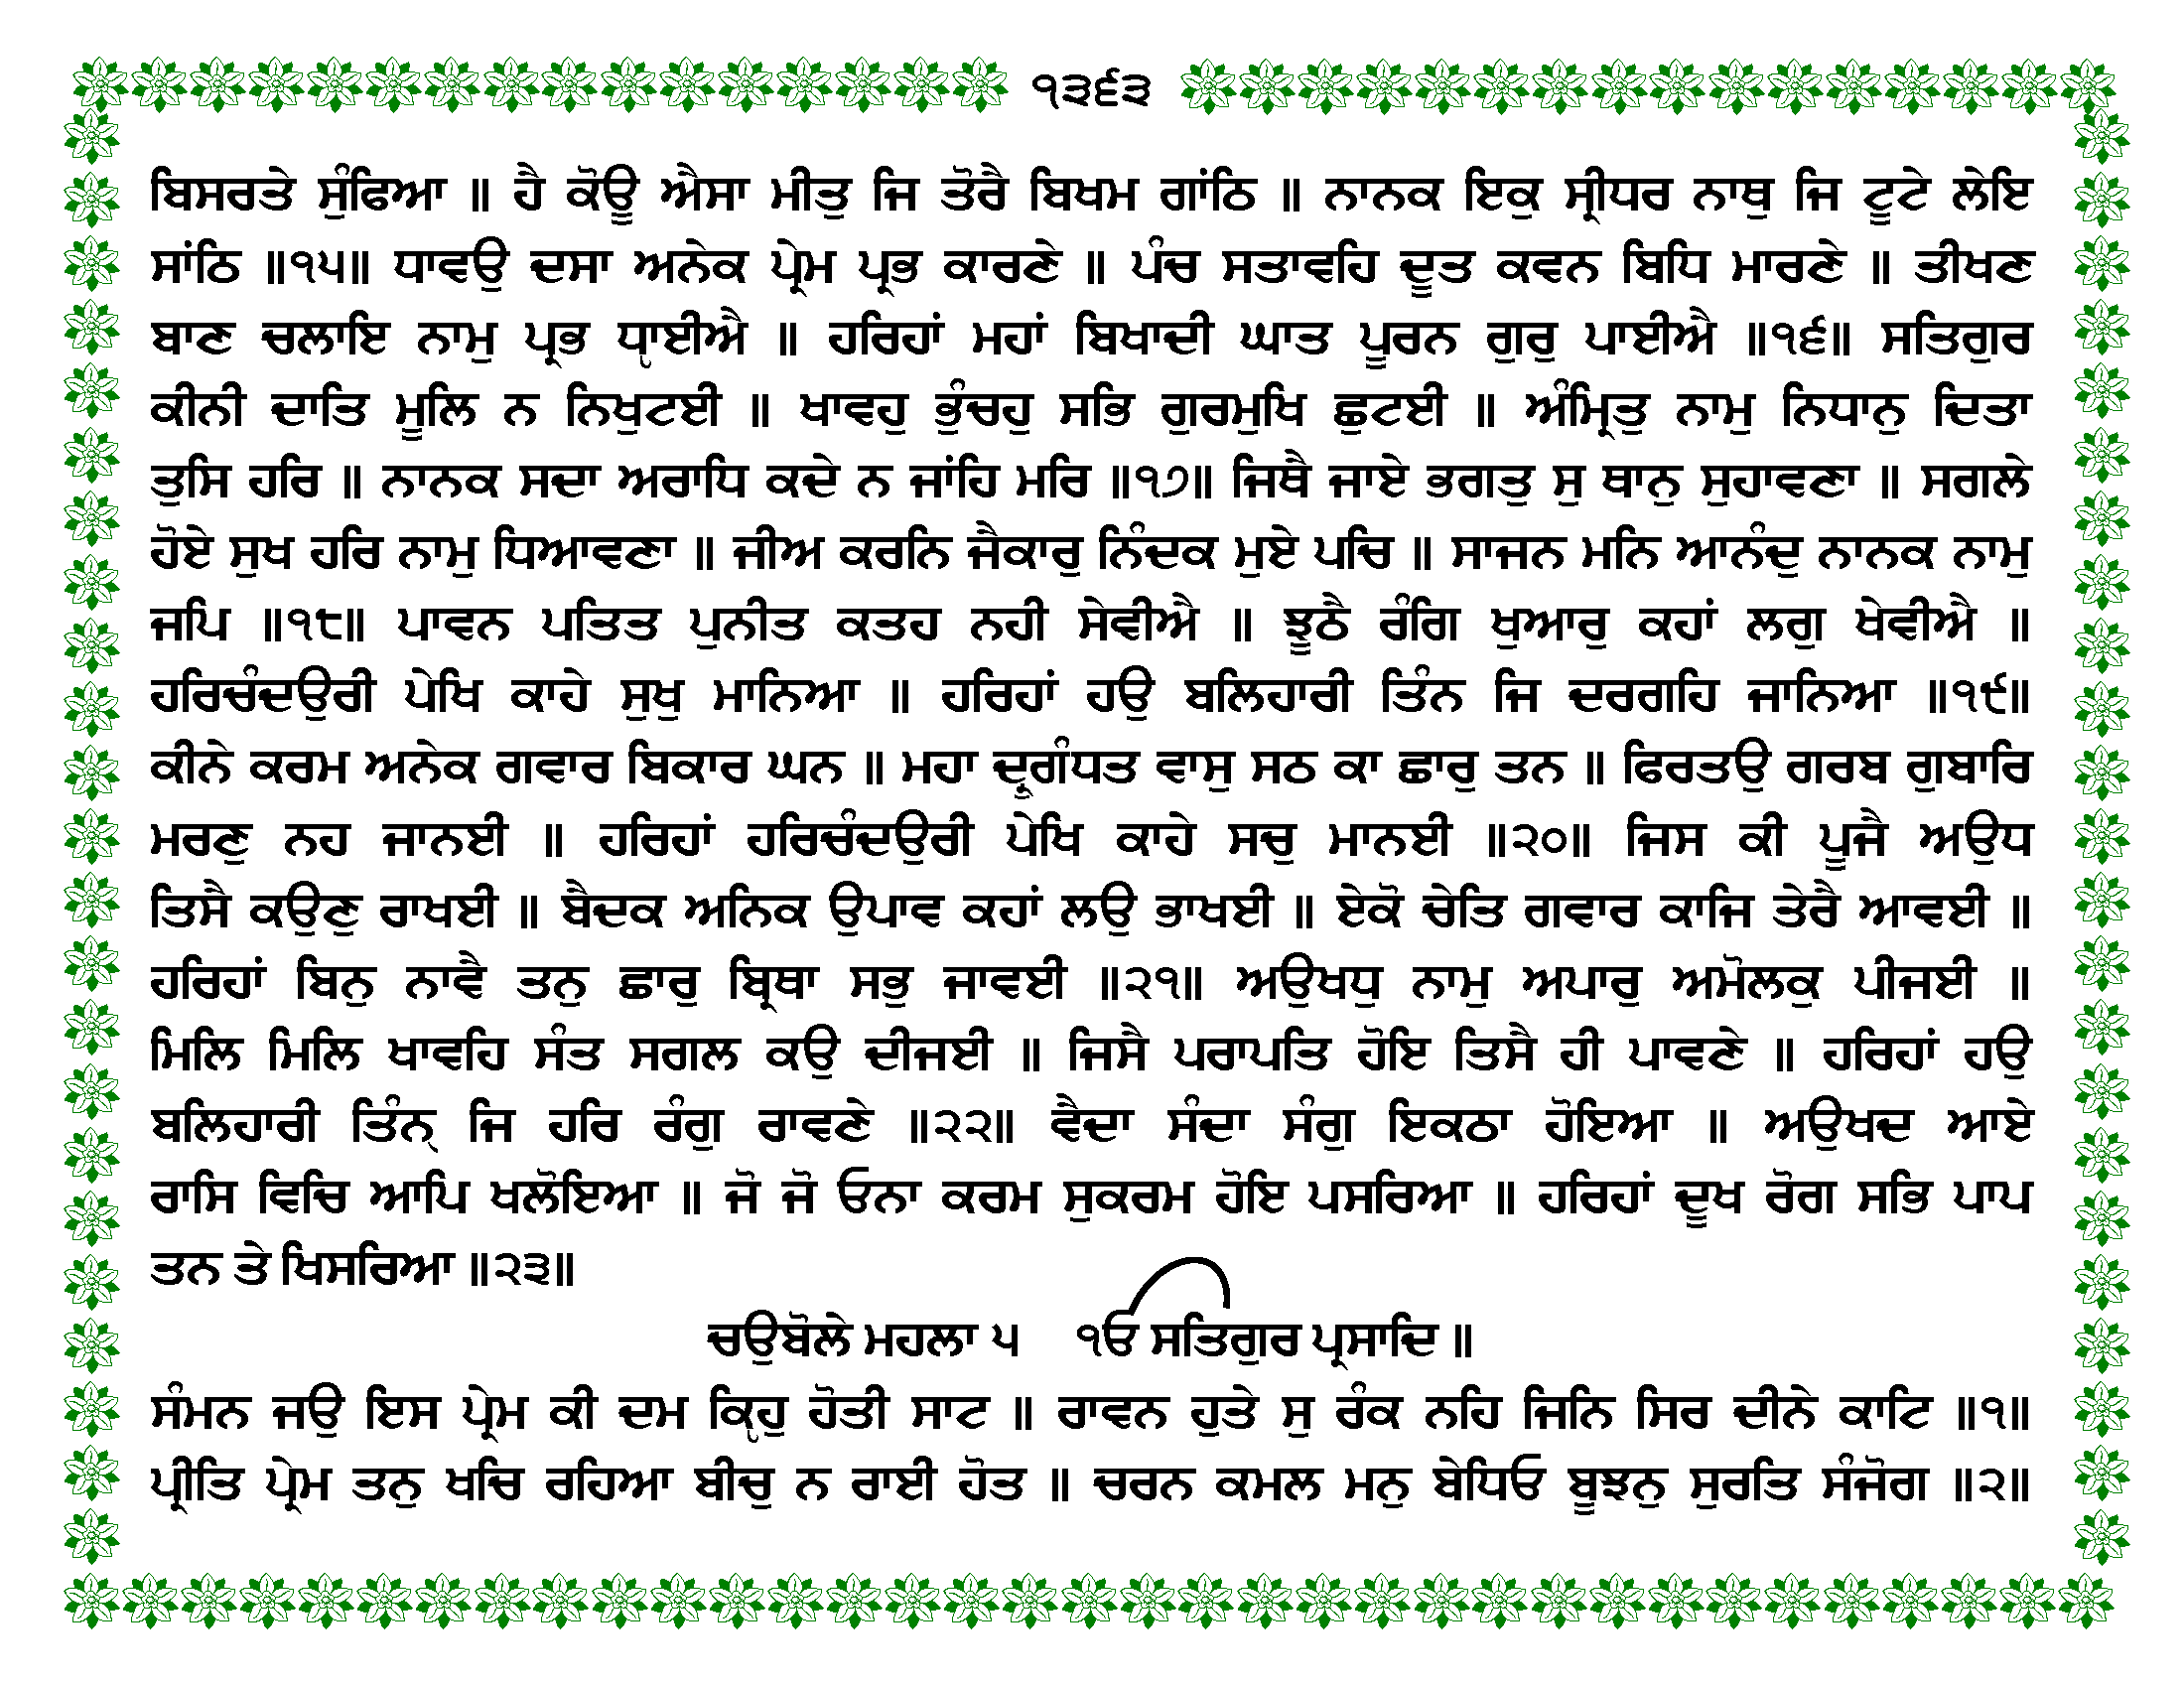 ੧੩੬੩
ਬਿਸਰਤੇ ਸੁੰਫਿਆ ॥ ਹੈ ਕੋਊ ਐਸਾ ਮੀਤੁ ਜਿ ਤੋਰੈ ਬਿਖਮ ਗਾਂਠਿ ॥ ਨਾਨਕ ਇਕੁ ਸ੍ਰੀਧਰ ਨਾਥੁ ਜਿ ਟੂਟੇ ਲੇਇ
ਸਾਂਠਿ ॥੧੫॥ ਧਾਵਉ ਦਸਾ ਅਨੇਕ ਪ੍ਰੇਮ ਪ੍ਰਭ ਕਾਰਣੇ ॥ ਪੰਚ ਸਤਾਵਹਿ ਦੂਤ ਕਵਨ ਬਿਧਿ ਮਾਰਣੇ ॥ ਤੀਖਣ
ਬਾਣ ਚਲਾਇ ਨਾਮੁ ਪ੍ਰਭ ਧੵਾਈਐ ॥ ਹਰਿਹਾਂ ਮਹਾਂ ਬਿਖਾਦੀ ਘਾਤ ਪੂਰਨ ਗੁਰੁ ਪਾਈਐ ॥੧੬॥ ਸਤਿਗੁਰ
ਕੀਨੀ ਦਾਤਿ ਮੂਲਿ ਨ ਨਿਖੁਟਈ ॥ ਖਾਵਹੁ ਭੁੰਚਹੁ ਸਭਿ ਗੁਰਮੁਖਿ ਛੁਟਈ ॥ ਅੰਮ੍ਰਿਤੁ ਨਾਮੁ ਨਿਧਾਨੁ ਦਿਤਾ
ਤੁਸਿ ਹਰਿ ॥ ਨਾਨਕ ਸਦਾ ਅਰਾਧਿ ਕਦੇ ਨ ਜਾਂਹਿ ਮਰਿ ॥੧੭॥ ਜਿਥੈ ਜਾਏ ਭਗਤੁ ਸੁ ਥਾਨੁ ਸੁਹਾਵਣਾ ॥ ਸਗਲੇ
ਹੋਏ ਸੁਖ ਹਰਿ ਨਾਮੁ ਧਿਆਵਣਾ ॥ ਜੀਅ ਕਰਨਿ ਜੈਕਾਰੁ ਨਿੰਦਕ ਮੁਏ ਪਚਿ ॥ ਸਾਜਨ ਮਨਿ ਆਨੰਦੁ ਨਾਨਕ ਨਾਮੁ
ਜਪਿ ॥੧੮॥ ਪਾਵਨ ਪਤਿਤ ਪੁਨੀਤ ਕਤਹ ਨਹੀ ਸੇਵੀਐ ॥ ਝੂਠੈ ਰੰਗਿ ਖੁਆਰੁ ਕਹਾਂ ਲਗੁ ਖੇਵੀਐ ॥
ਹਰਿਚੰਦਉਰੀ ਪੇਖਿ ਕਾਹੇ ਸੁਖੁ ਮਾਨਿਆ ॥ ਹਰਿਹਾਂ ਹਉ ਬਲਿਹਾਰੀ ਤਿੰਨ ਜਿ ਦਰਗਹਿ ਜਾਨਿਆ ॥੧੯॥
ਕੀਨੇ ਕਰਮ ਅਨੇਕ ਗਵਾਰ ਬਿਕਾਰ ਘਨ ॥ ਮਹਾ ਦ੍ਰੁਗੰਧਤ ਵਾਸੁ ਸਠ ਕਾ ਛਾਰੁ ਤਨ ॥ ਫਿਰਤਉ ਗਰਬ ਗੁਬਾਰਿ
ਮਰਣੁ ਨਹ ਜਾਨਈ ॥ ਹਰਿਹਾਂ ਹਰਿਚੰਦਉਰੀ ਪੇਖਿ ਕਾਹੇ ਸਚੁ ਮਾਨਈ ॥੨੦॥ ਜਿਸ ਕੀ ਪੂਜੈ ਅਉਧ
ਤਿਸੈ ਕਉਣੁ ਰਾਖਈ ॥ ਬੈਦਕ ਅਨਿਕ ਉਪਾਵ ਕਹਾਂ ਲਉ ਭਾਖਈ ॥ ਏਕੋ ਚੇਤਿ ਗਵਾਰ ਕਾਜਿ ਤੇਰੈ ਆਵਈ ॥
ਹਰਿਹਾਂ ਬਿਨੁ ਨਾਵੈ ਤਨੁ ਛਾਰੁ ਬ੍ਰਿਥਾ ਸਭੁ ਜਾਵਈ ॥੨੧॥ ਅਉਖਧੁ ਨਾਮੁ ਅਪਾਰੁ ਅਮੋਲਕੁ ਪੀਜਈ ॥
ਮਿਲਿ ਮਿਲਿ ਖਾਵਹਿ ਸੰਤ ਸਗਲ ਕਉ ਦੀਜਈ ॥ ਜਿਸੈ ਪਰਾਪਤਿ ਹੋਇ ਤਿਸੈ ਹੀ ਪਾਵਣੇ ॥ ਹਰਿਹਾਂ ਹਉ
ਬਲਿਹਾਰੀ ਤਿੰਨ੍ ਜਿ ਹਰਿ ਰੰਗੁ ਰਾਵਣੇ ॥੨੨॥ ਵੈਦਾ ਸੰਦਾ ਸੰਗੁ ਇਕਠਾ ਹੋਇਆ ॥ ਅਉਖਦ ਆਏ
ਰਾਸਿ ਵਿਚਿ ਆਪਿ ਖਲੋਇਆ ॥ ਜੋ ਜੋ ਓਨਾ ਕਰਮ ਸੁਕਰਮ ਹੋਇ ਪਸਰਿਆ ॥ ਹਰਿਹਾਂ ਦੂਖ ਰੋਗ ਸਭਿ ਪਾਪ
ਤਨ ਤੇ ਖਿਸਰਿਆ ॥੨੩॥
ਚਉਬੋਲੇ ਮਹਲਾ ੫ ੴ ਸਤਿਗੁਰ ਪ੍ਰਸਾਦਿ ॥
ਸੰਮਨ ਜਉ ਇਸ ਪ੍ਰੇਮ ਕੀ ਦਮ ਕੵਿਹੁ ਹੋਤੀ ਸਾਟ ॥ ਰਾਵਨ ਹੁਤੇ ਸੁ ਰੰਕ ਨਹਿ ਜਿਨਿ ਸਿਰ ਦੀਨੇ ਕਾਟਿ ॥੧॥
ਪ੍ਰੀਤਿ ਪ੍ਰੇਮ ਤਨੁ ਖਚਿ ਰਹਿਆ ਬੀਚੁ ਨ ਰਾਈ ਹੋਤ ॥ ਚਰਨ ਕਮਲ ਮਨੁ ਬੇਧਿਓ ਬੂਝਨੁ ਸੁਰਤਿ ਸੰਜੋਗ ॥੨॥